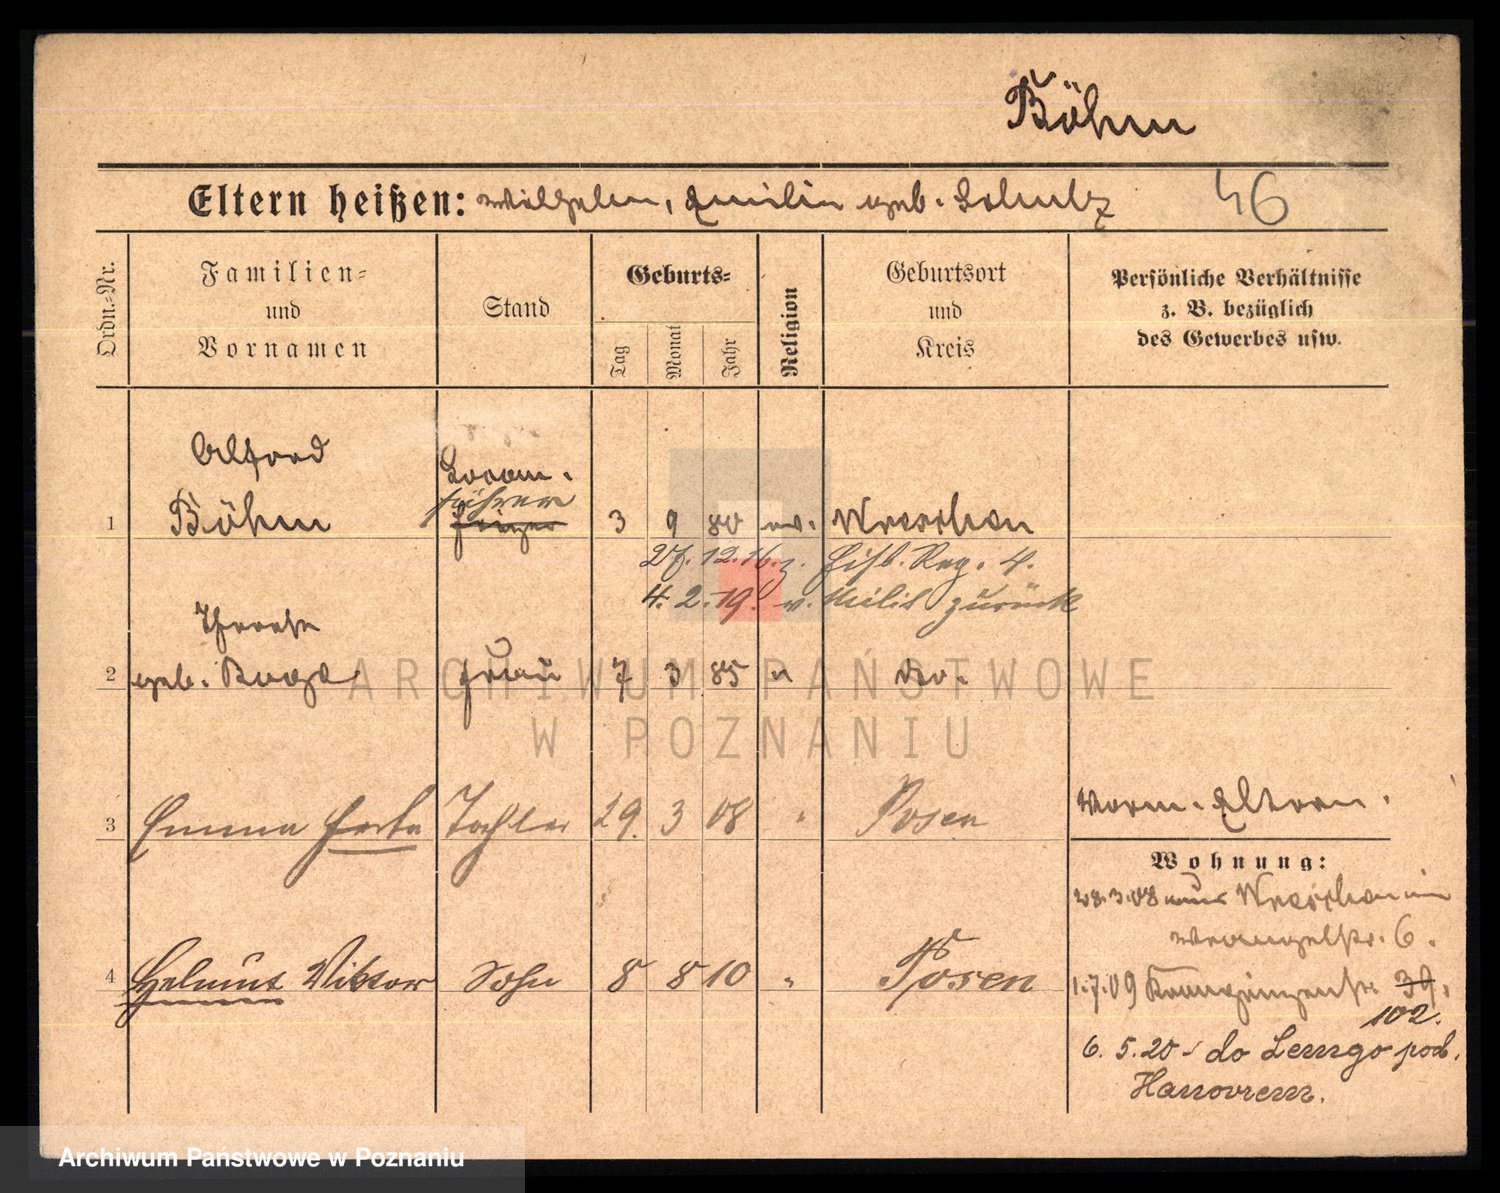 Böhm
Eltern heißen: Wilhelm, Emilie geb. Schulz 46
Ordn.=Nr.
Familien=
und
Vornamen
Stand
Geburts=
Tag
Monat
Jahr
Religion
Geburtsort
und
Kreis
Persönliche Verhältnisse
z. B. bezüglich
des Gewerbes usw.
Alfred
Böhm
führer
1 3 9 80 ev. Wreschen
27. 12. 16. z. Eisb. Reg. 4.
4. 2. 19. v. Milit zurück
Therese
2 geb. Frau 7 3 85 " do.
3 Emma Herta Tochter 29. 3 08 " Posen
Eltern.
Wohnung:
28.3.08 aus Wreschen in
Wrangelstr. 6.
4 Helmut Viktor Sohn 8 8 10 " Posen
1.7.09 Kronprinzenstr. 39.
102.
6. 5. 20 - do Lemgo pod.
Hanowrem.
ARCHIWUM PAŃSTWOWE
W POZNANIU
Archiwum Państwowe w Poznaniu